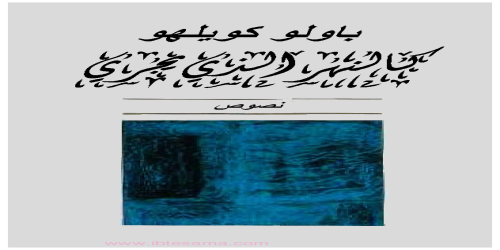 باولو كويلهو
كالنهر الذي يجري
نصوص
www.ibtesama.com